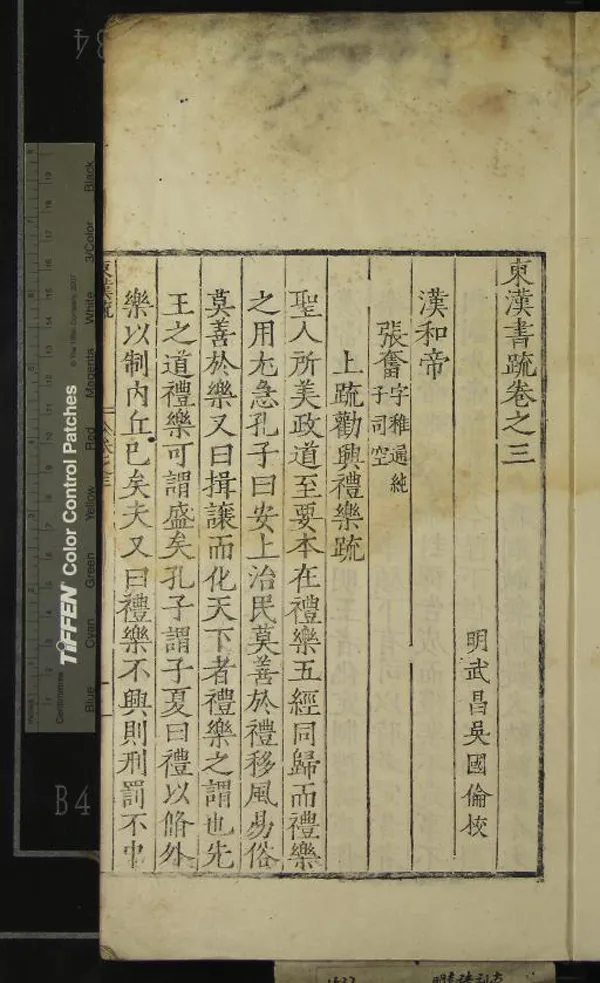 東漢書疏卷之三
明武昌吳國倫校
漢和帝
張奮字稚通純
子司空
上疏勸興禮樂疏
聖人所美政道至要本在禮樂五經同歸而禮樂
之用尤急孔子曰安上治民莫善於禮移風易俗
莫善於樂又曰揖讓而化天下者禮樂之謂也先
王之道禮樂可謂盛矣孔子謂子夏曰禮以脩外
樂以制內丘已矣夫又曰禮樂不興則刑罰不中
B4
B4
TIFFEN Color Control Patches
© The Tiffen Company, 2007
Centimetres
Inches
Blue
Cyan
Green
Yellow
Red
Magenta
White
3/Color
Black